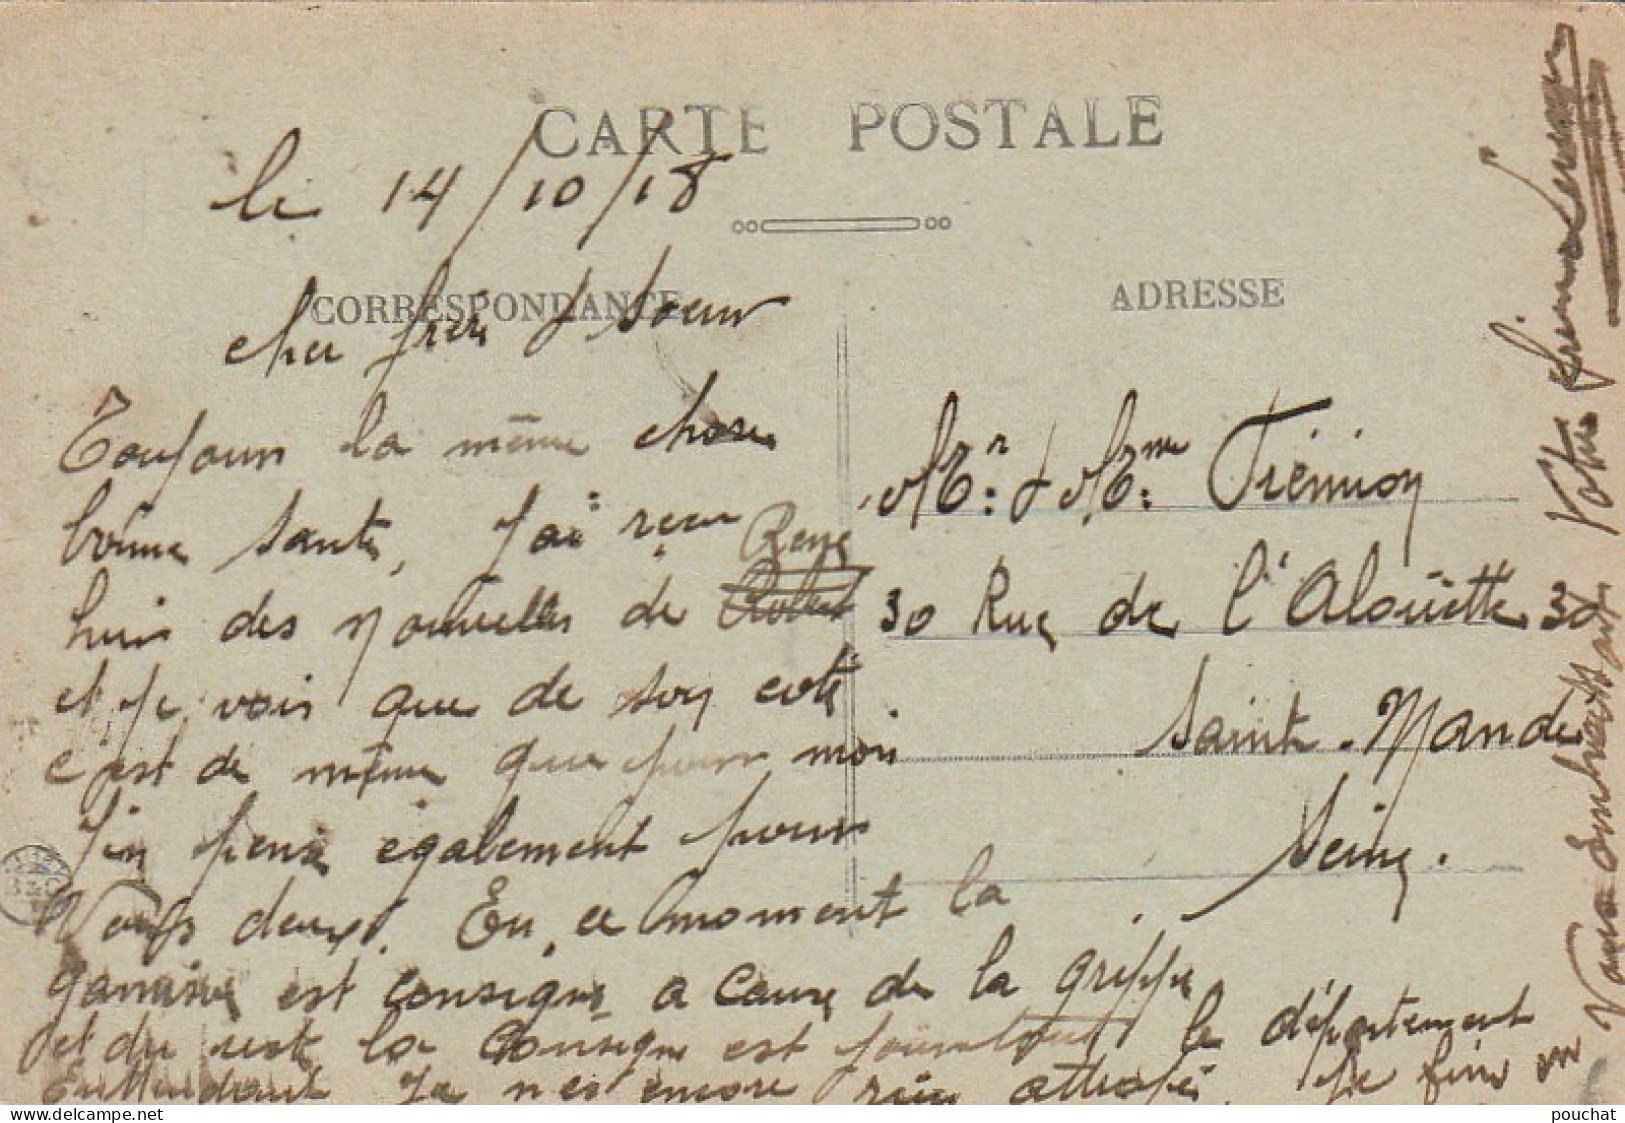 CARTE POSTALE
le 14/10/18
CORRESPONDANCE
ADRESSE
cher frère & soeur
Toujours la même chose
bonne santé, j'ai reçu
René
hier des nouvelles de Robert
et je vois que de son coté
c'est de même que pour moi
j'en pense également pour
Vous deux. En ce moment la
garnison est consigné a cause de la grippe
et du reste la consigne est pour tout le département
En attendant je n'ai encore rien attrapé. Je finis en
Vous embrassant Votre frère
Mr. & Mme. Trémion
30 Rue de l'Alouëtte 30
Saint-Mandé
Seine.
pouchat